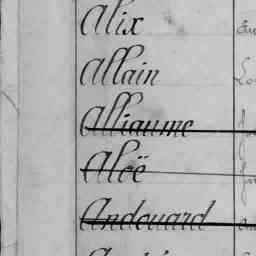 Alix
Allain
Alliaume
Aloë
Andouard